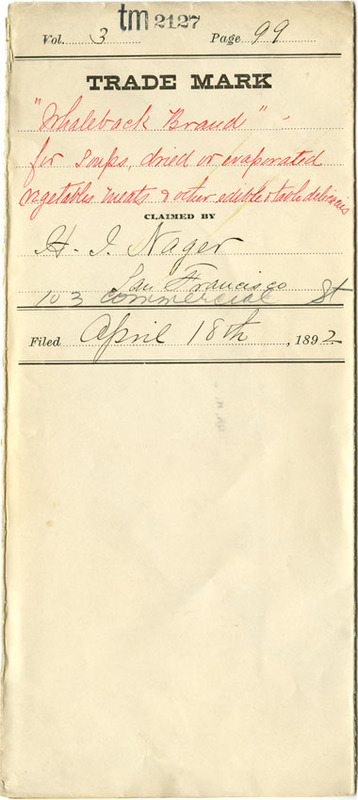 tm 2127
Vol. 3 Page 99
TRADE MARK
"Whaleback Brand"
for Soups, dried or evaporated
vegetables, meats & other edible & table delicacies
CLAIMED BY
H. I. Nager
San Francisco
103 commercial St
Filed April 18th, 1892